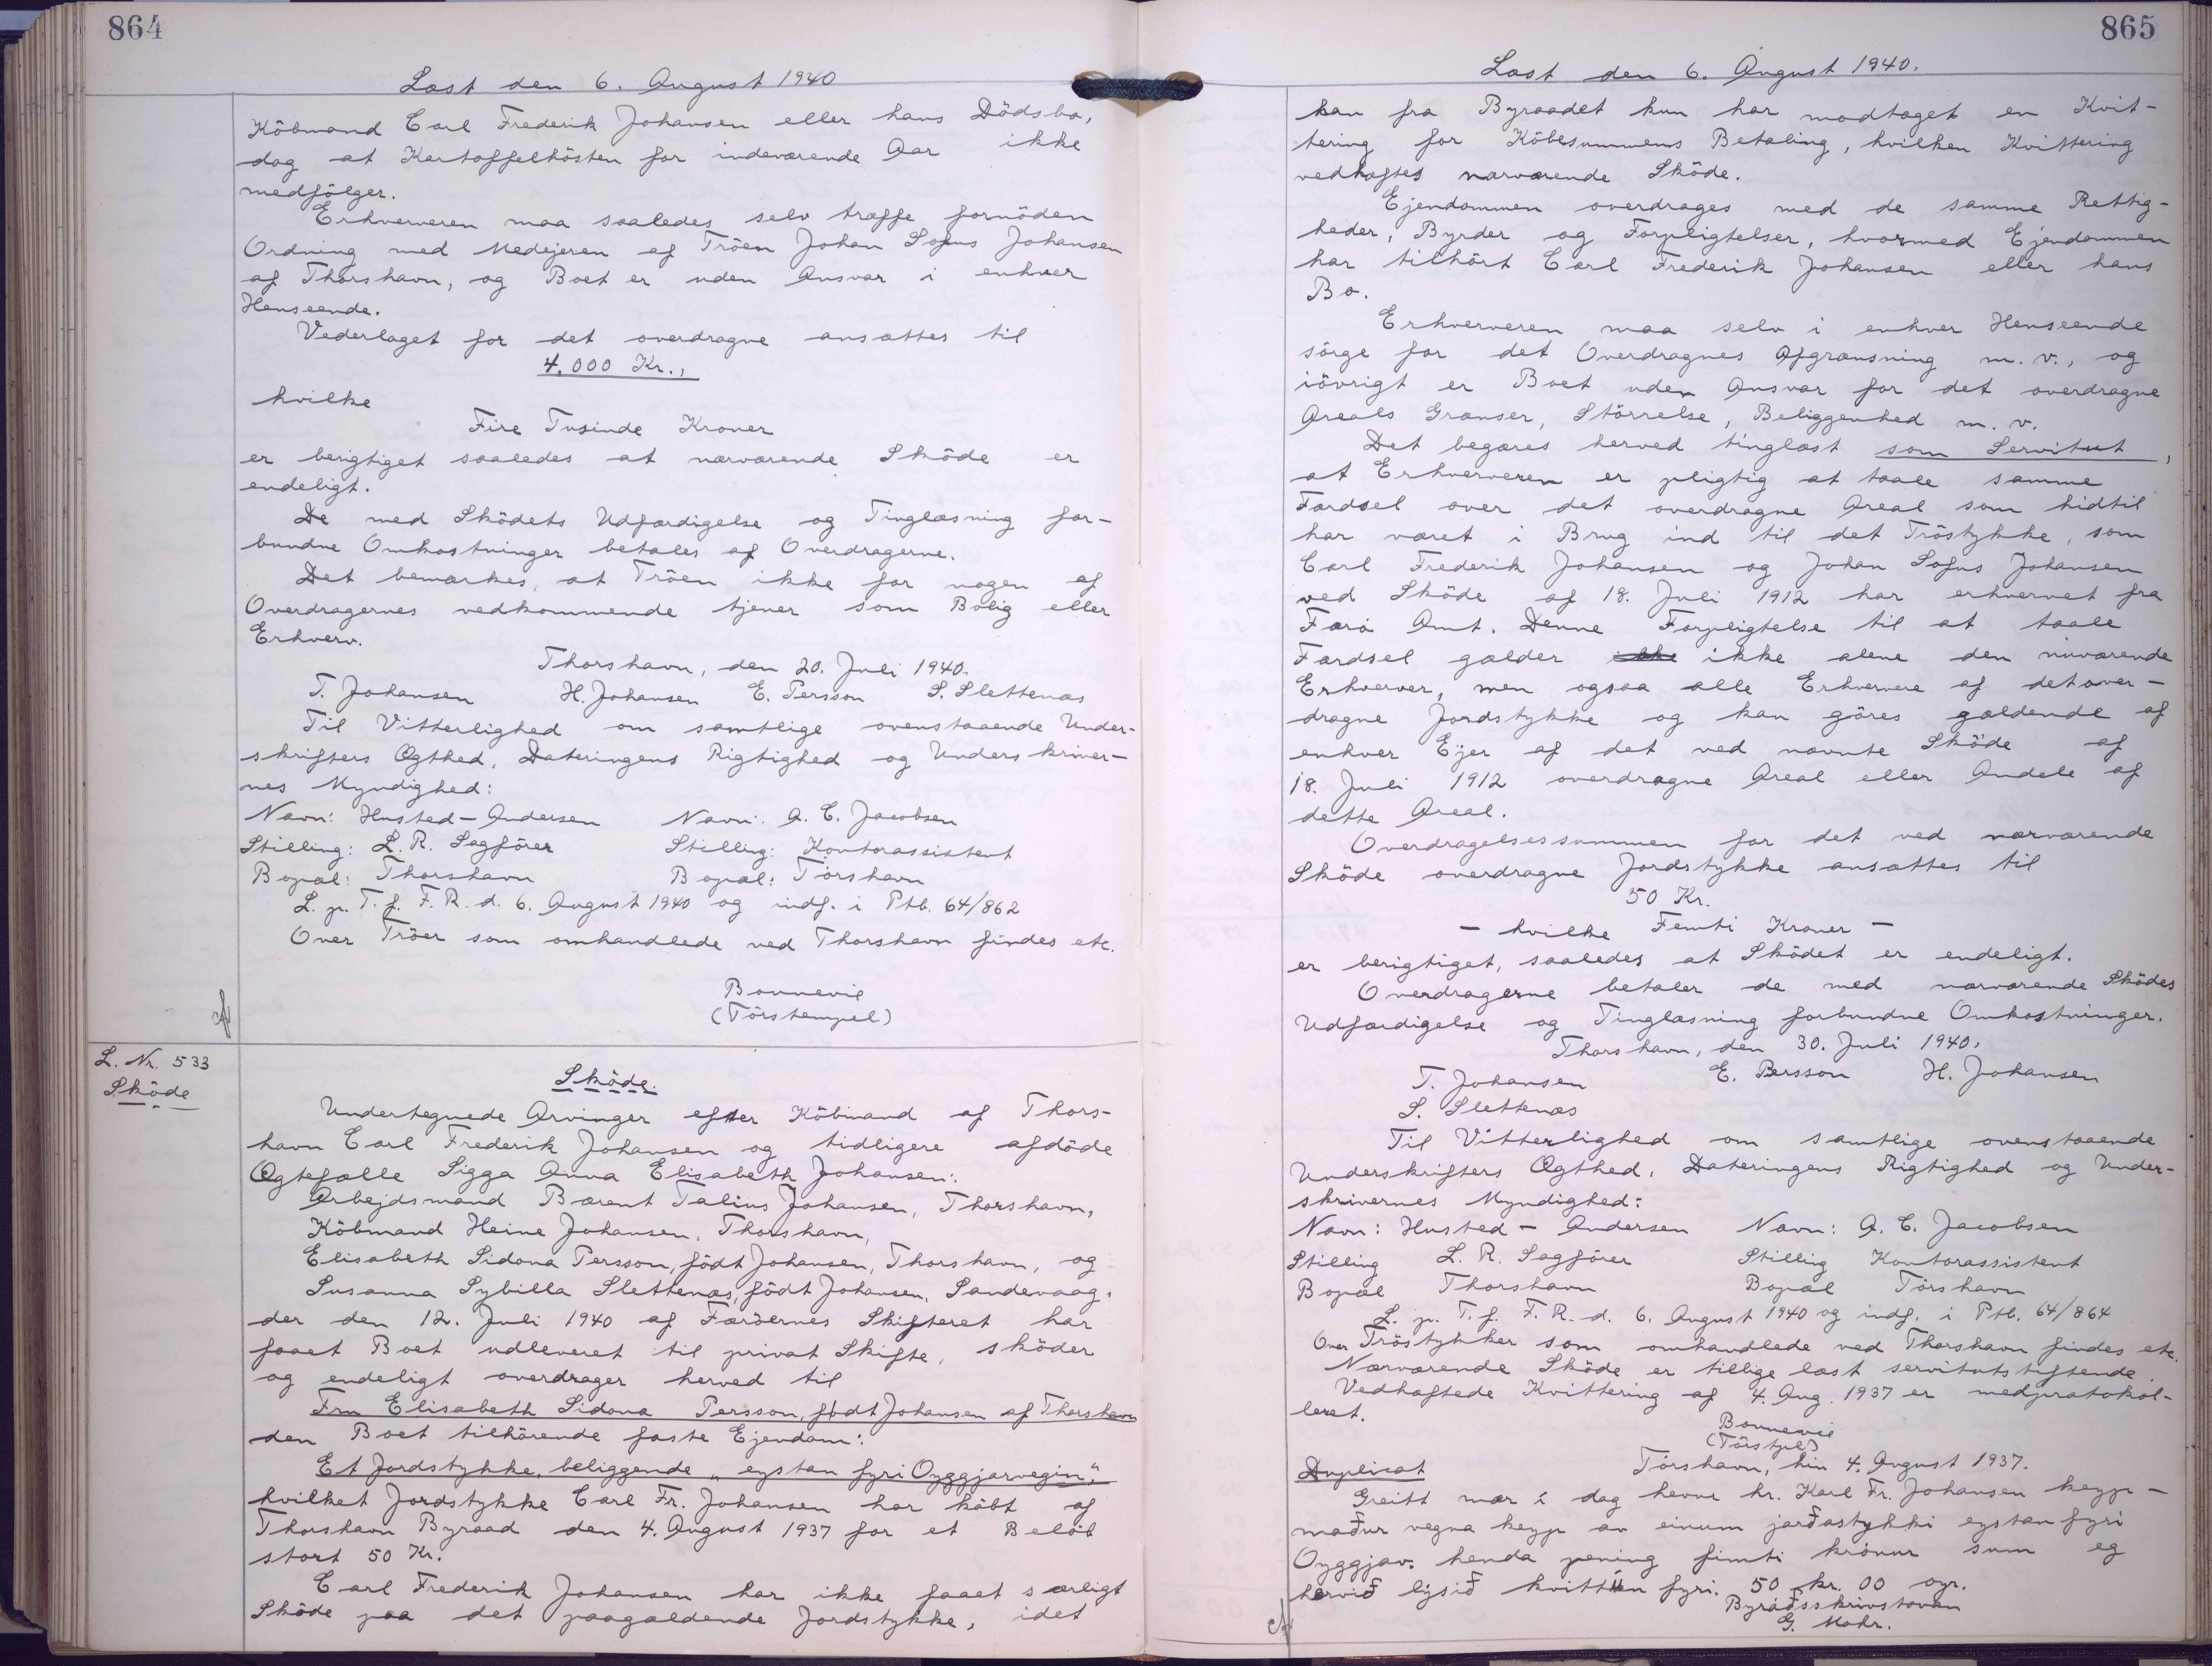 864
Læst den 6. August 1940
Köbmand Carl Frederik Johansen eller hans Dödsbo,
dog at Kartoffelhösten for indeværende Aar ikke
medfölger.
Erhververen maa saaledes selv træffe fornöden
Ordning med Medejeren af Tröen Johan Sofus Johansen
af Thorshavn, og Boet er uden Ansvar i enhver
Henseende.
Vederlaget for det overdragne ansættes til
4.000 Kr.,
hvilke
Fire Tusinde Kroner
er berigtiget saaledes at nærværende Sköde er
endeligt.
De med Sködets Udfærdigelse og Tinglæsning for-
bundne Omkostninger betales af Overdragerne.
Det bemærkes, at Tröen ikke for nogen af
Overdragernes vedkommende tjener som Bolig eller
Erhverv.
Thorshavn, den 20. Juli 1940.
T. Johansen H. Johansen E. Persson S. Slettenæs
Til Vitterlighed om samtlige ovenstaaende Under-
skrifters Ægthed, Dateringens Rigtighed og Underskriver-
nes Myndighed:
Navn: Husted-Andersen Navn: A. C. Jacobsen
Stilling: L. R. Sagförer Stilling: Kontorassistent
Bopæl: Thorshavn Bopæl: Tórshavn
L. p. T. f. F. R. d. 6. August 1940 og indf. i Ptb. 64/862
Over Tröer som omhandlede ved Thorshavn findes etc.
Bonnevie
(Tórstempel)
L. Nr. 533
Sköde
Sköde.
Undertegnede Arvinger efter Köbmand af Thors-
havn Carl Frederik Johansen og tidligere afdöde
Ægtefælle Sigga Anna Elisabeth Johansen:
Arbejdsmand Bærent Talius Johansen, Thorshavn,
Köbmand Heine Johansen, Thorshavn,
Elisabeth Sidona Persson, födt Johansen, Thorshavn, og
Susanna Sybilla Slettenæs, födt Johansen, Sandevaag.
der den 12. Juli 1940 af Færöernes Skifteret har
faaet Boet udleveret til privat Skifte, sköder
og endeligt overdrager herved til
Fru Elisabeth Sidona Persson, födt Johansen af Thorshavn
den Boet tilhörende faste Ejendom:
Et Jordstykke, beliggende „eystan fyri Oyggjarvegin",
hvilket Jordstykke Carl Fr. Johansen har köbt af
Thorshavn Byraad den 4. August 1937 for et Belöb
stort 50 Kr.
Carl Frederik Johansen har ikke faaet særligt
Sköde paa det paagældende Jordstykke, idet
865
Læst den 6. August 1940.
han fra Byraadet kun har modtaget en Kvit-
tering for Köbesummens Betaling, hvilken Kvittering
vedhæftes nærværende Sköde.
Ejendommen overdrages med de samme Rettig-
heder, Byrder og Forpligtelser, hvormed Ejendommen
har tilhört Carl Frederik Johansen eller hans
Bo.
Erhververen maa selv i enhver Henseende
sörge for det Overdragnes Afgrænsning m. v., og
iövrigt er Boet uden Ansvar for det overdragne
Areals Grænser, Störrelse, Beliggenhed m. v.
Det begæres herved tinglæst som Servitut,
at Erhververen er pligtig at taale samme
Færdsel over det overdragne Areal som hidtil
har været i Brug ind til det Tröstykke, som
Carl Frederik Johansen og Johan Sofus Johansen
ved Sköde af 18. Juli 1912 har erhvervet fra
Færö Amt. Denne Forpligtelse til at taale
Færdsel gælder ikke ikke alene den nuværende
Erhverver, men ogsaa alle Erhververe af det over-
dragne Jordstykke og kan göres gældende af
enhver Ejer af det ved nævnte Sköde af
18. Juli 1912 overdragne Areal eller Andele af
dette Areal.
Overdragelsessummen for det ved nærværende
Sköde overdragne Jordstykke ansættes til
50 Kr.
- hvilke Femti Kroner -
er berigtiget, saaledes at Sködet er endeligt.
Overdragerne betaler de med nærværende Sködes
Udfærdigelse og Tinglæsning forbundne Omkostninger.
Thorshavn, den 30. Juli 1940.
T. Johansen E. Persson H. Johansen
S. Slettenæs
Til Vitterlighed om samtlige ovenstaaende
Underskrifters Ægthed, Dateringens Rigtighed og Under-
skrivernes Myndighed:
Navn: Husted-Andersen Navn: A. C. Jacobsen
Stilling L. R. Sagförer Stilling Kontorassistent
Bopæl Thorshavn Bopæl Tórshavn
L. p. T. f. F. R. d. 6. August 1940 og indf. i Ptb. 64/864
Over Tröstykker som omhandlede ved Thorshavn findes etc.
Nærværende Sköde er tillige læst servitutstiftende.
Vedhæftede Kvittering af 4. Aug. 1937 er medprotokol-
leret.
Bonnevie
(Tórstpl)
Duplicat
Tórshavn, hin 4. August 1937.
Greitt mær í dag hevur hr. Karl Fr. Johansen keyp-
maður vegna keyp av einum jarðastykki eystan fyri
Oyggjav. henda pening fimti krónur sum eg
hervið lýsið kvittan fyri. 50 kr. 00 oyr.
Byráðsskrivstovan
G. Mohr.